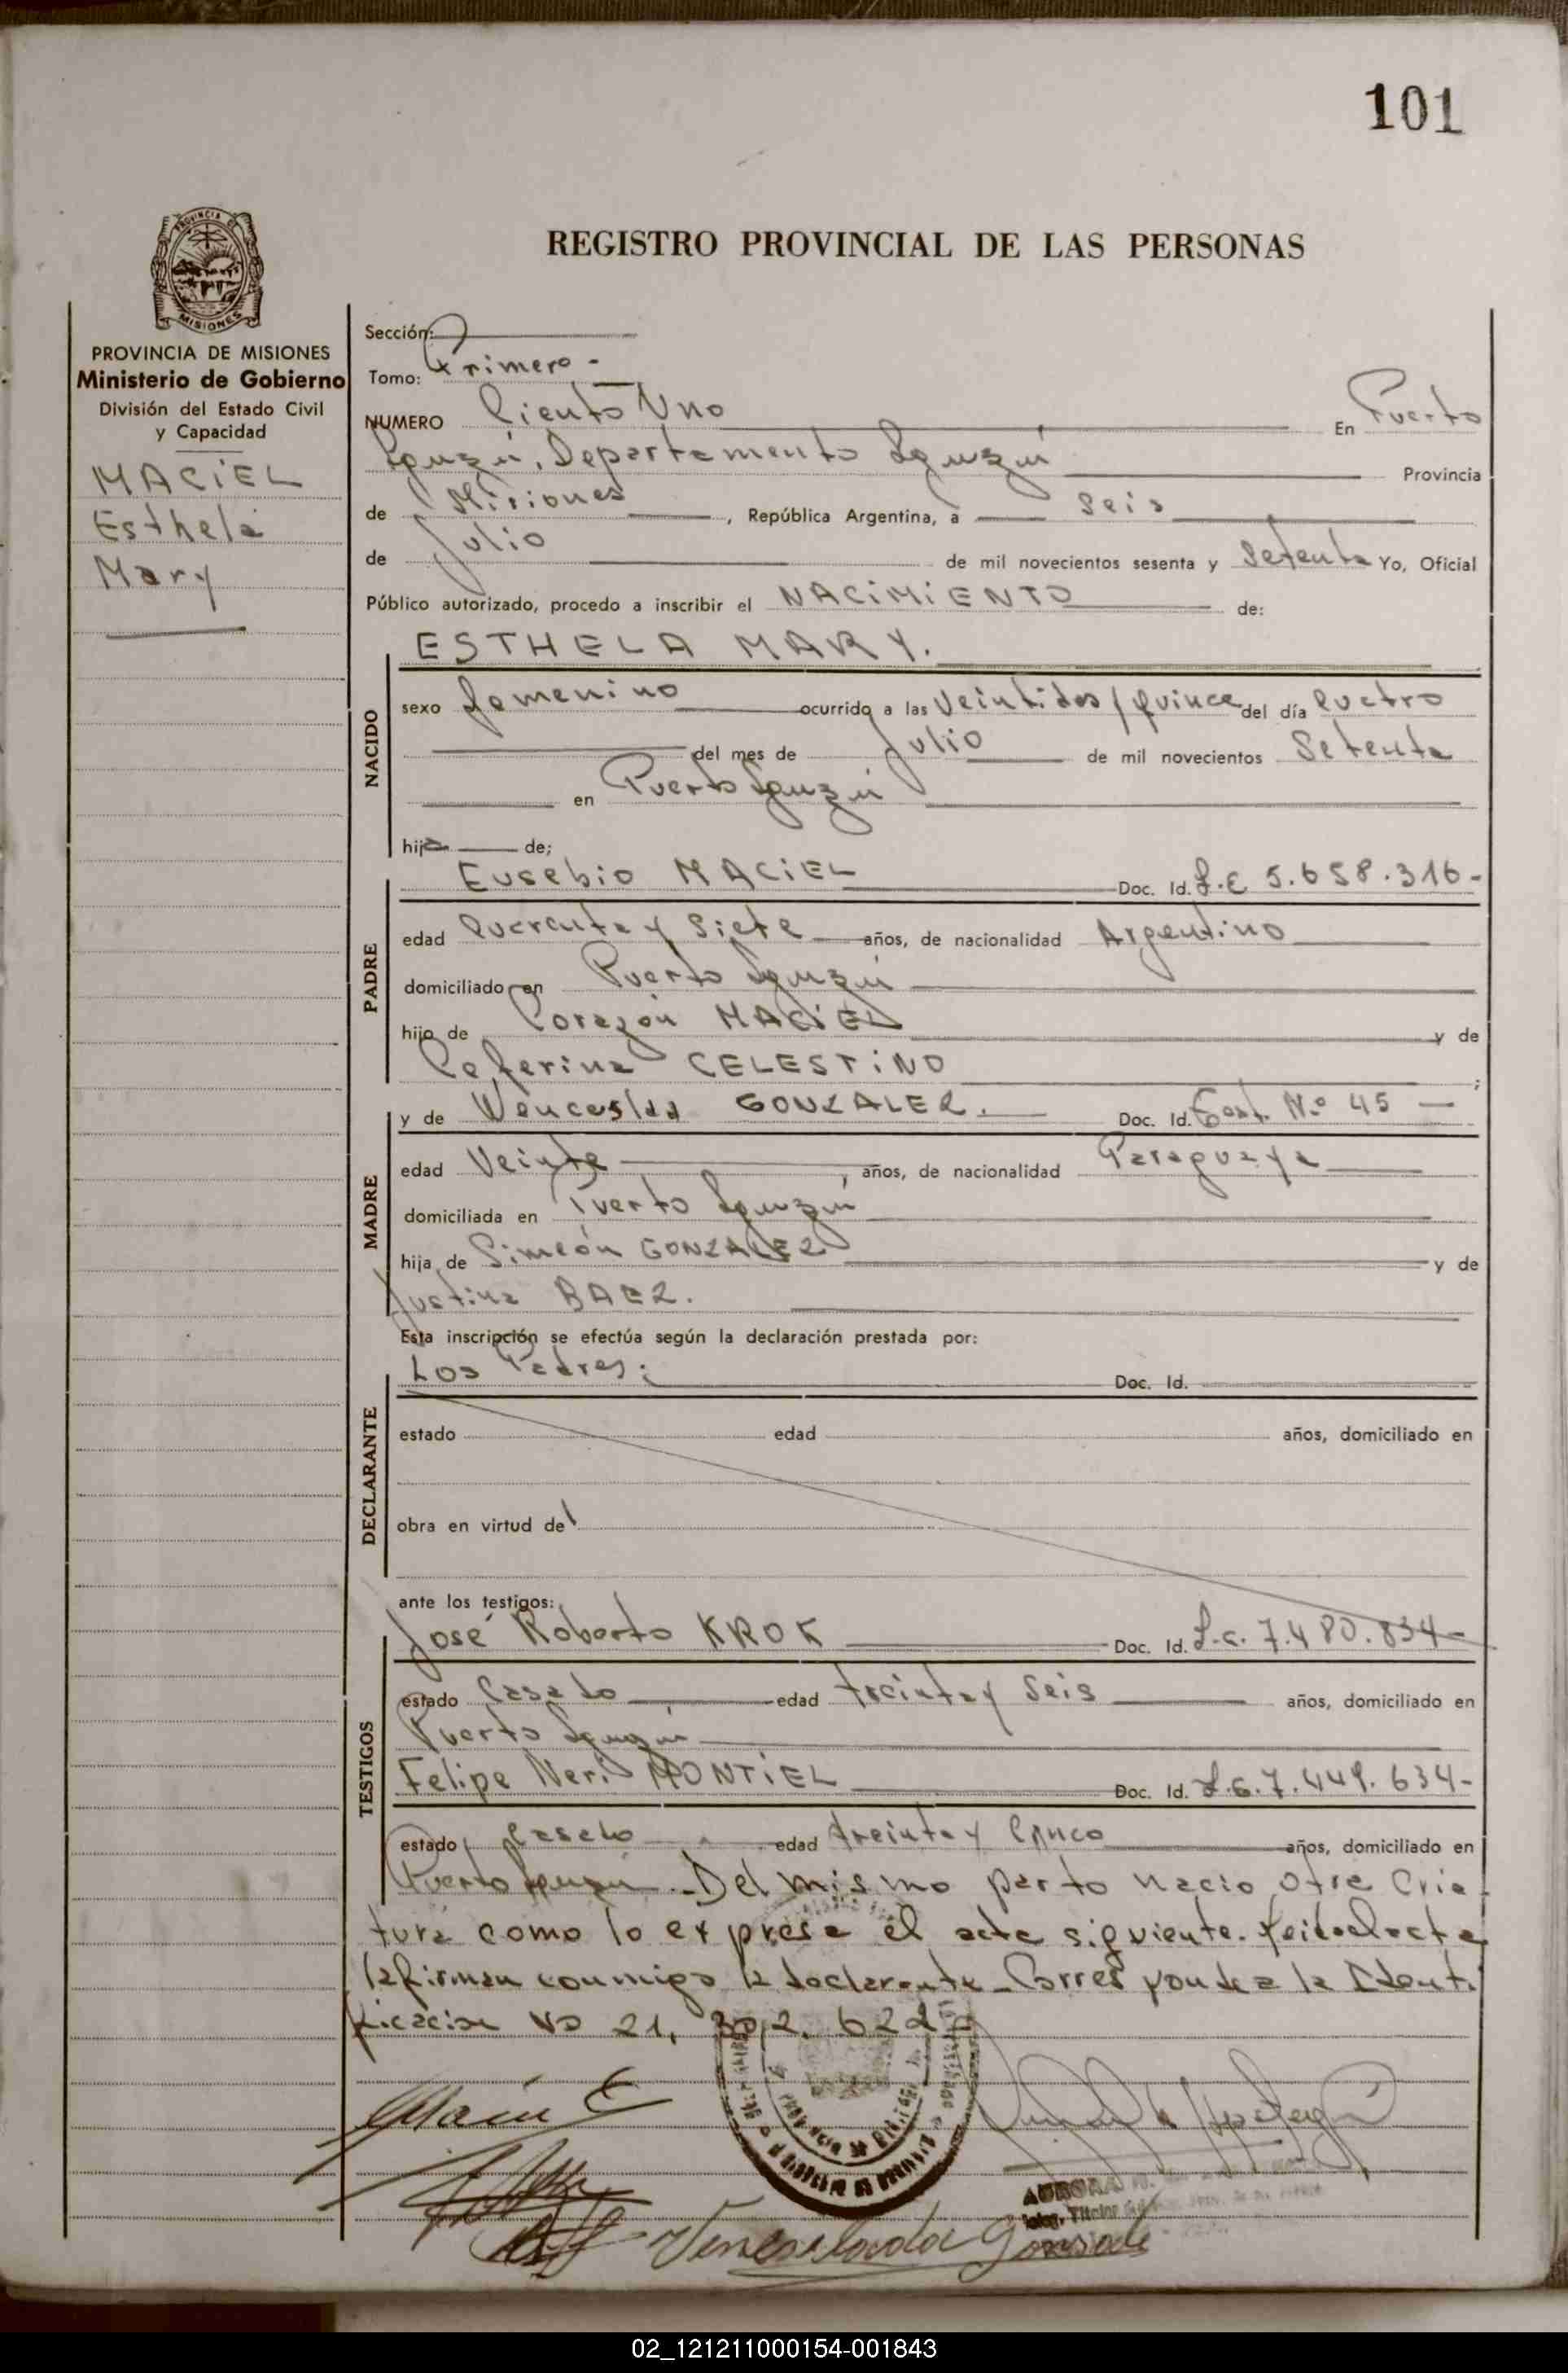 101
PROVINCIA DE
MISIONES
REGISTRO PROVINCIAL DE LAS PERSONAS
PROVINCIA DE MISIONES
Ministerio de Gobierno
División del Estado Civil
y Capacidad
MACIEL
Esthela
Mary
Sección:
Tomo: Primero -
NUMERO Ciento Uno En Puerto
Iguazú, Departamento Iguazú Provincia
de Misiones, República Argentina, a Seis
de Julio de mil novecientos sesenta y Setenta Yo, Oficial
Público autorizado, procedo a inscribir el NACIMIENTO de:
ESTHELA MARY.
NACIDO
sexo femenino ocurrido a las Veintidos/quince del día Cuatro
del mes de Julio de mil novecientos Setenta
en Puerto Iguazú
hija de;
PADRE
Eusebio MACIEL Doc. Id. L.E 5.658.316-
edad Cuarenta y Siete años, de nacionalidad Argentino
domiciliado en Puerto Iguazú
hijo de Corazón MACIEL y de
Ceferina CELESTINO ;
MADRE
y de Wenceslaa GONZALEZ. Doc. Id. Cost. Nº 45
edad Veinte años, de nacionalidad Paraguaya
domiciliada en Puerto Iguazú
hija de Simeón GONZALEZ y de
Justina BAEZ.
Esta inscripción se efectúa según la declaración prestada por:
DECLARANTE
Los Padres; Doc. Id.
estado edad años, domiciliado en
obra en virtud de
ante los testigos:
TESTIGOS
José Roberto KROK Doc. Id. L.E. 7.480.834-
estado Casado edad treinta y Seis años, domiciliado en
Puerto Iguazú
Felipe Neri MONTIEL Doc. Id. L.E. 7.449.634-
estado Casado edad treinta y Cinco años, domiciliado en
Puerto Iguazú.- Del mismo parto nacio otra Cria
tura como lo expresa el acta siguiente. leida el acta
la firman conmigo la declarante- Corresponde a la Identi
ficacion No 21, 302. 622
Maciel E
AURORA
Venceslada Gonsale
02_121211000154-001843